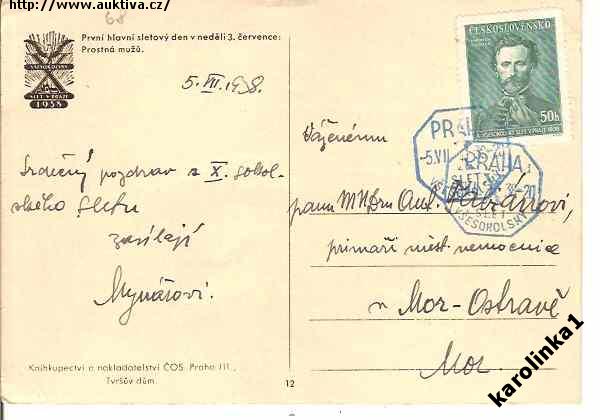 http://www.auktiva.cz/
68
První hlavní sletový den v neděli 3. července:
Prostná mužů.
VŠESOKOLSKÝ
X
SLET V PRAZE
1938
5. VII. 1938.
Srdečný pozdrav z X. sokol-
ského sletu
zasílají
Mynářovi.
Knihkupectví a nakladatelství ČOS. Praha III.,
Tyršův dům.
12
ČESKOSLOVENSKO
50h
X. VŠESOKOLSKÝ SLET V PRAZE 1938
PRAHA
-5.VII
PRAHA
SLET
VŠESOKOLSKÝ
Váženému
panu MUDru Ant.
primáři měst. nemocnice
v Mor-Ostravě
Mor.
karolinka1